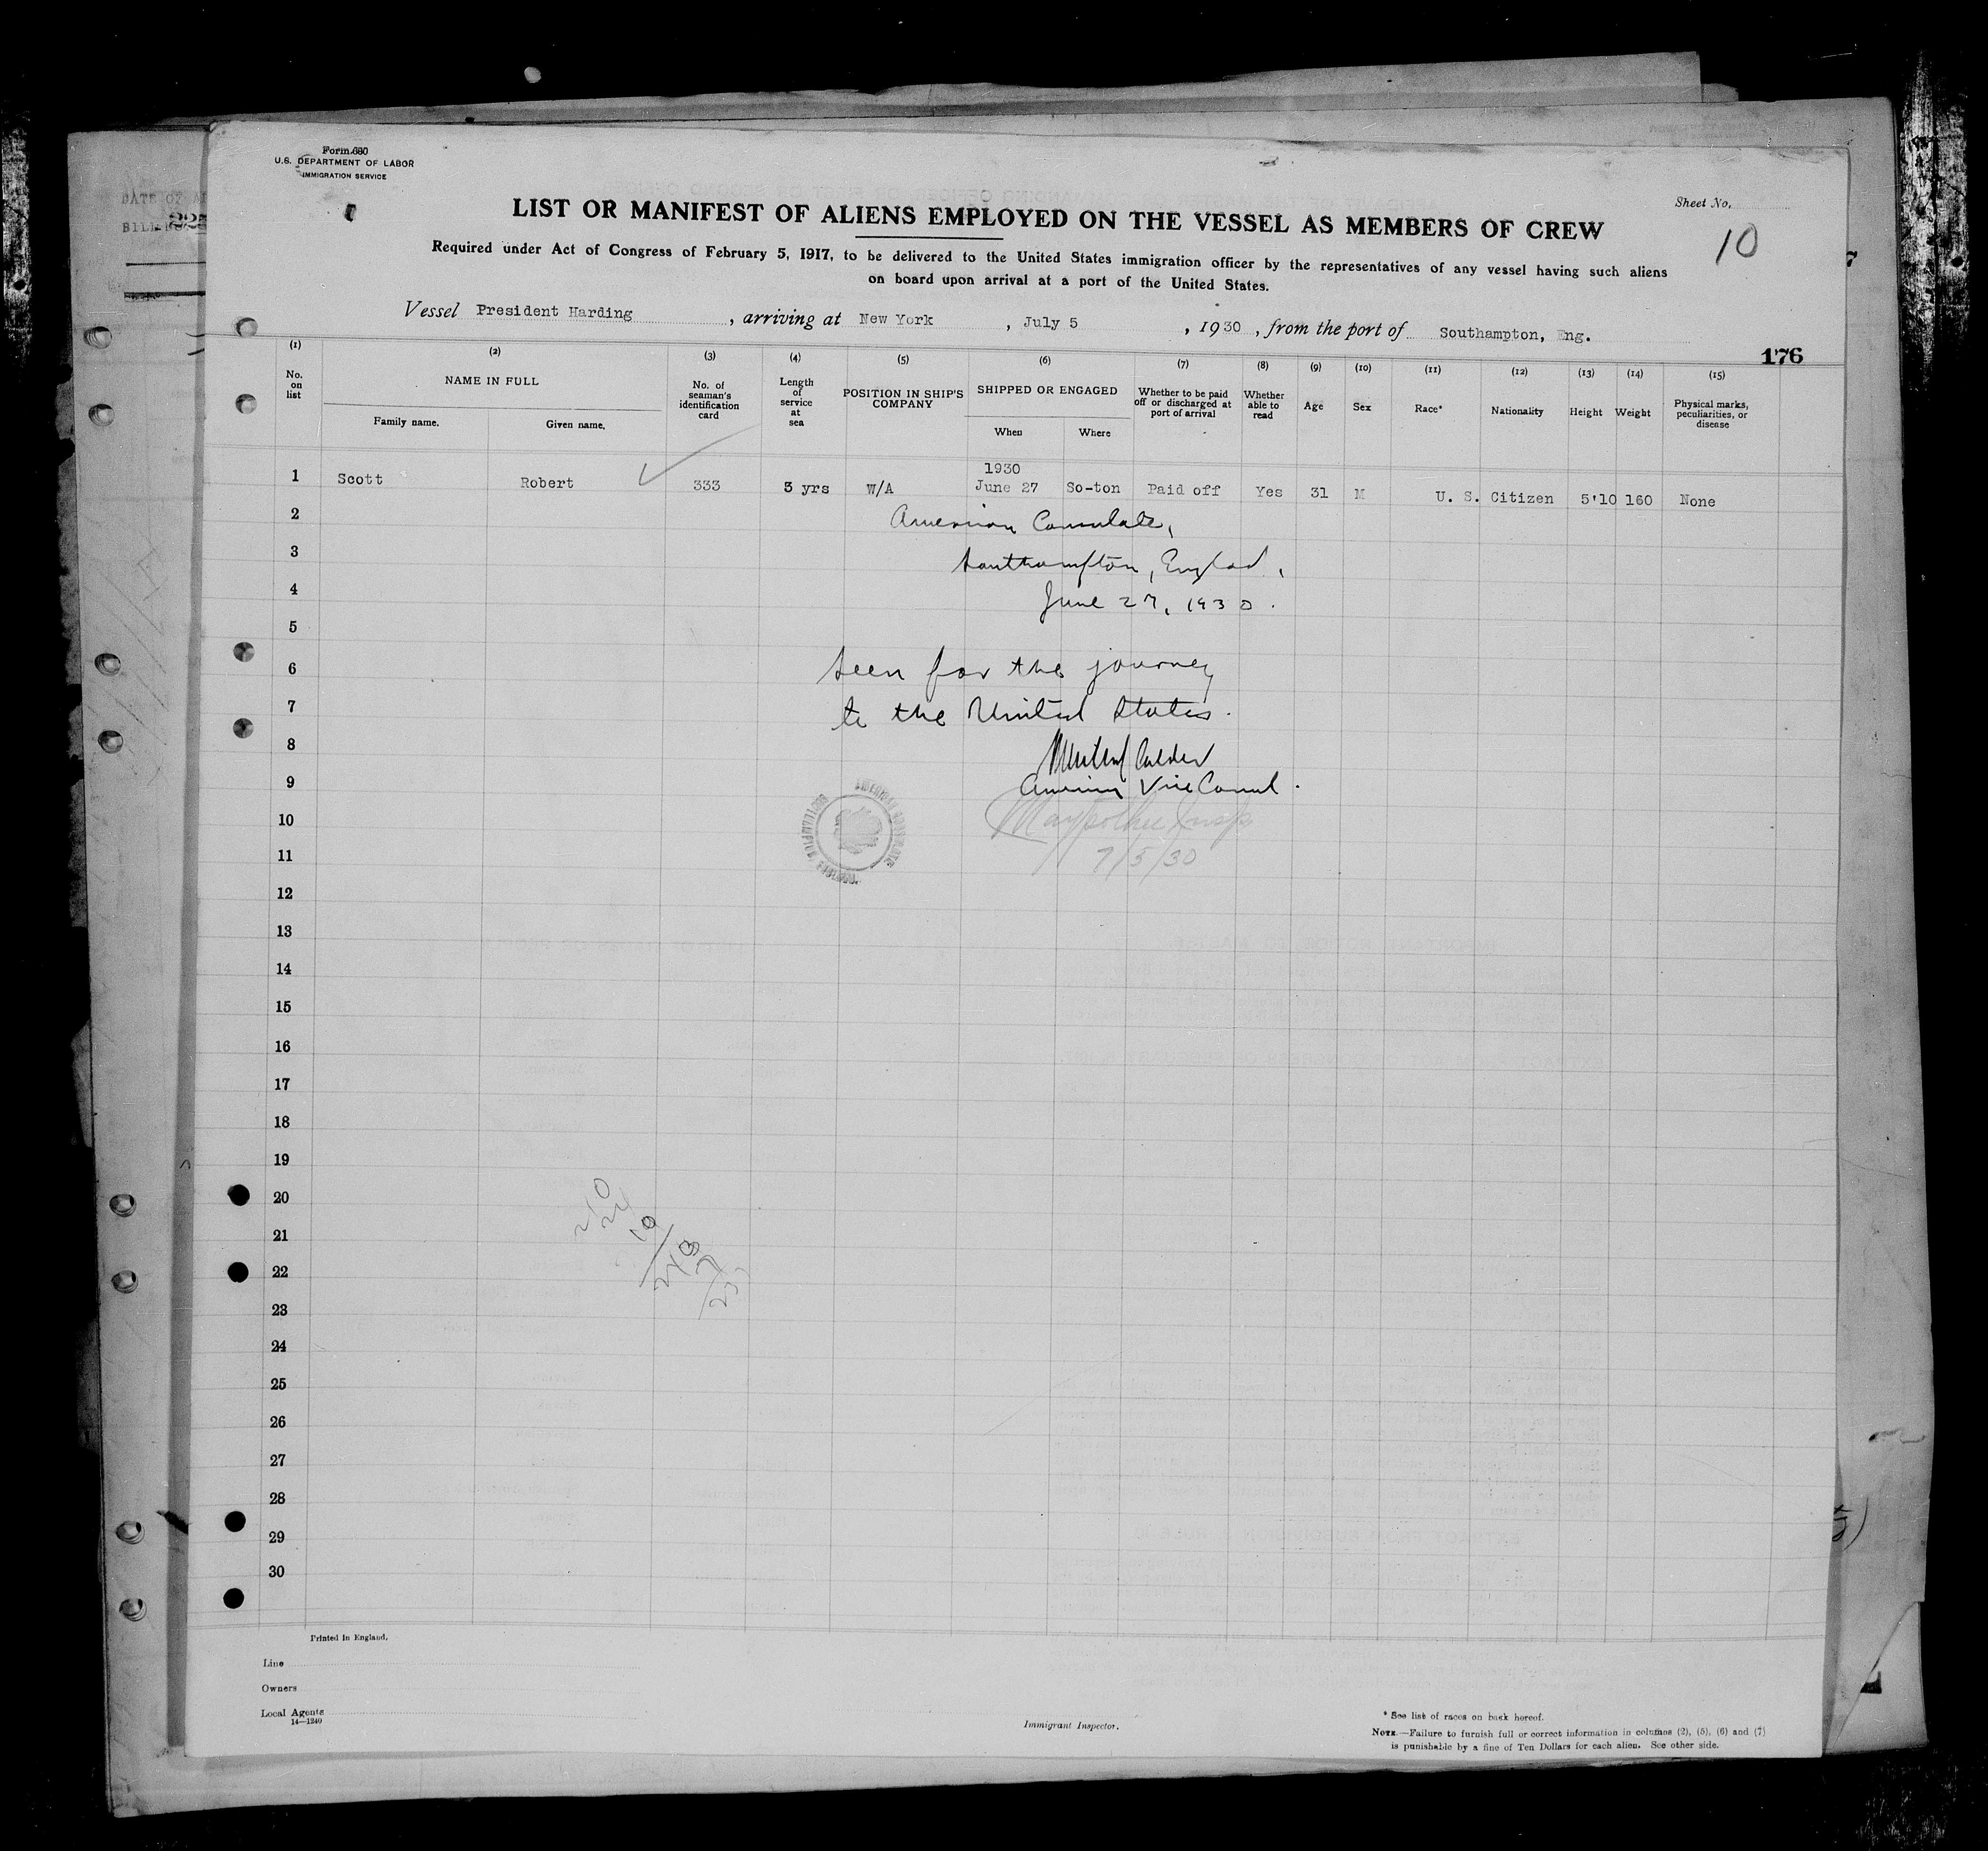 Form 680
U.S. DEPARTMENT OF LABOR
IMMIGRATION SERVICE
DATE OF
Sheet No.
10
LIST OR MANIFEST OF ALIENS EMPLOYED ON THE VESSEL AS MEMBERS OF CREW
Required under Act of Congress of February 5, 1917, to be delivered to the United States immigration officer by the representatives of any vessel having such aliens
on board upon arrival at a port of the United States.
Vessel President Harding, arriving at New York, July 5, 1930, from the port of Southampton, Eng.
176
(1) (2) (3) (4) (5) (6) (7) (8) (9) (10) (11) (12) (13) (14) (15)
No. on list
NAME IN FULL
Family name. Given name.
No. of seaman's identification card
Length of service at sea
POSITION IN SHIP'S COMPANY
SHIPPED OR ENGAGED
When Where
Whether to be paid off or discharged at port of arrival
Whether able to read
Age
Sex
Race*
Nationality
Height
Weight
Physical marks, peculiarities, or disease
1930
1 Scott Robert 333 3 yrs W/A June 27 So-ton Paid off Yes 31 M U. S. Citizen 5'10 160 None
2 American Consulate,
3 Southampton, England,
4 June 27, 1930.
5
6 Seen for the journey
7 to the United States.
8 Calder
9 American Vice Consul.
10
11 7/5/30
AMERICAN CONSULATE
12
13
14
15
16
17
18
19
20
21
22
23
24
25
26
27
28
29
30
Printed in England.
Line
Owners
Local Agents
14—1240
Immigrant Inspector.
* See list of races on back hereof.
NOTE.—Failure to furnish full or correct information in columns (2), (5), (6) and (7)
is punishable by a fine of Ten Dollars for each alien. See other side.